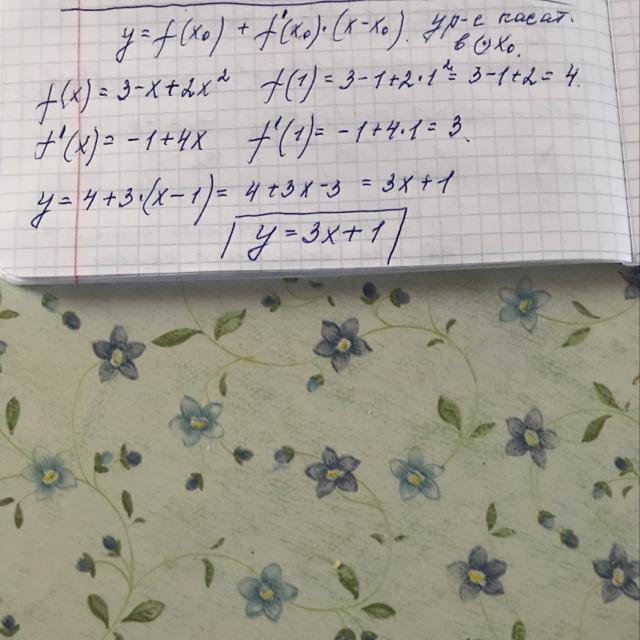 y = f(x₀) + f'(x₀)·(x-x₀). ур-е касат.
в (·) x₀.
f(x) = 3-x+2x² f(1) = 3-1+2·1² = 3-1+2 = 4.
f'(x) = -1+4x f'(1) = -1+4·1 = 3.
y = 4+3·(x-1) = 4+3x-3 = 3x+1
y = 3x+1